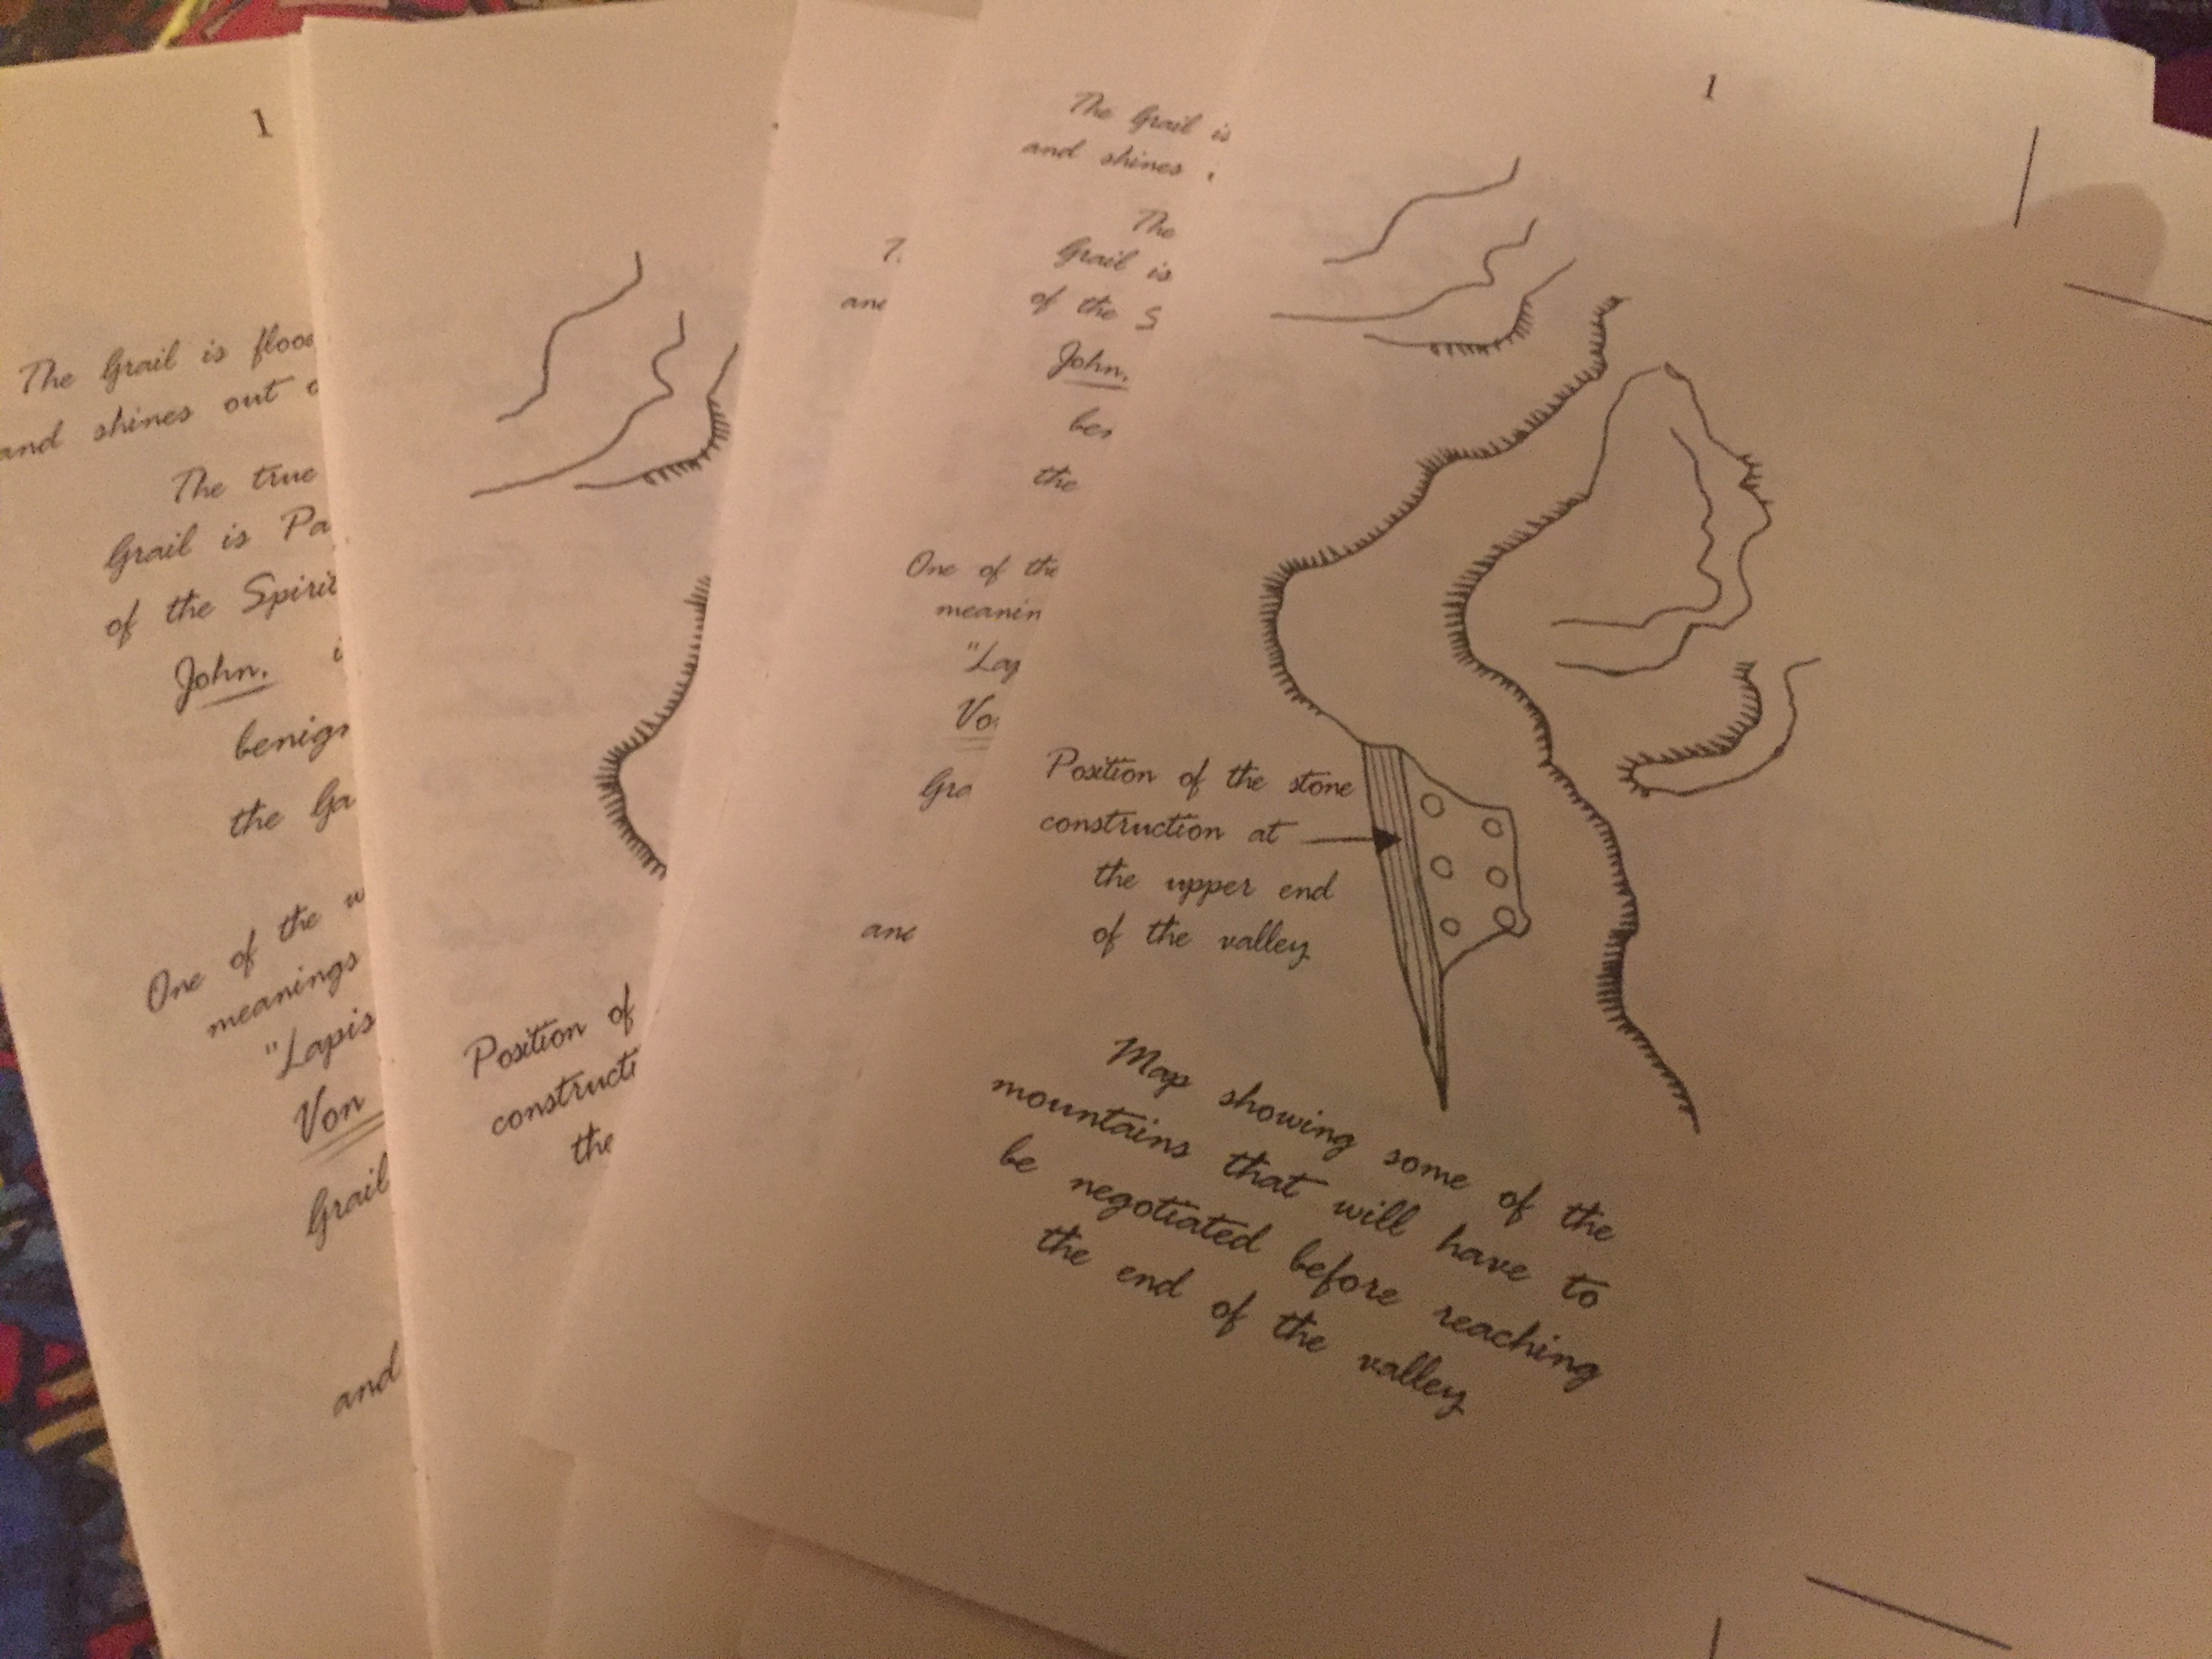 1
The Grail is
and shines out
The true
Grail is
of the Spirit
John.
the
One of the
meanings
"Lapis
Von
Grail
and
Position of
the
The Grail is
and shines
The
Grail is
of the S
John.
the
One of the
"Lap
and
1
Position of the stone
construction at
the upper end
of the valley
Map showing some of the
mountains that will have to
be negotiated before reaching
the end of the valley